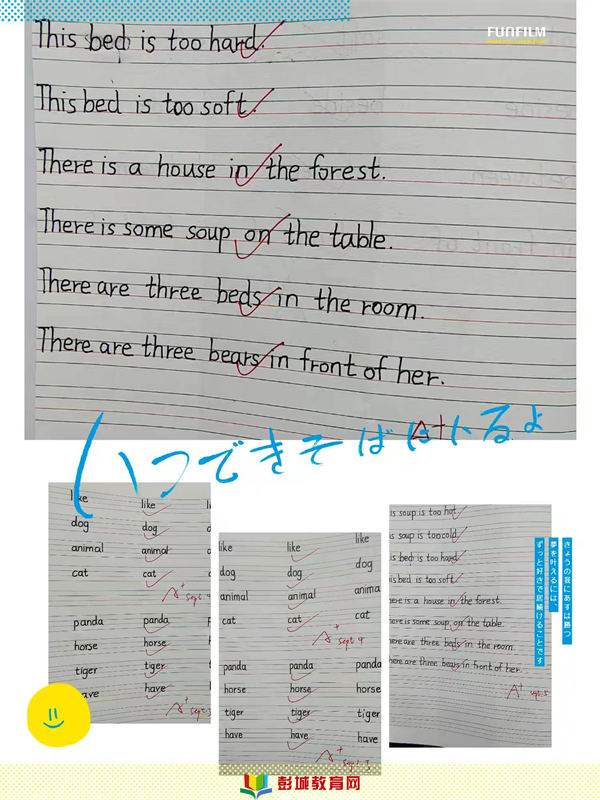 FUNFILM
This bed is too hard.
This bed is too soft.
There is a house in the forest.
There is some soup on the table.
There are three beds in the room.
There are three bears in front of her.
A+
いつでもそばにいるよ
like like
dog dog
animal animal
cat cat
A+ Sept. 4
panda panda
horse horse
tiger tiger
have have
A+ Sept. 3
like like like
dog dog dog
animal animal anima
cat cat cat
A+ Sept 4
panda panda panda
horse horse horse
tiger tiger tiger
have have have
A+ Sept. 3
is soup is too hot
is soup is too cold
is bed is too hard
his bed is too soft
here is a house in the forest.
here is some soup on the table.
here are three beds in the room.
here are three bears in front of her.
A+ Sept. 5
きょうの我にあすは勝つ
夢を叶えるには、
ずっと好きで居続けることです
彭城教育网